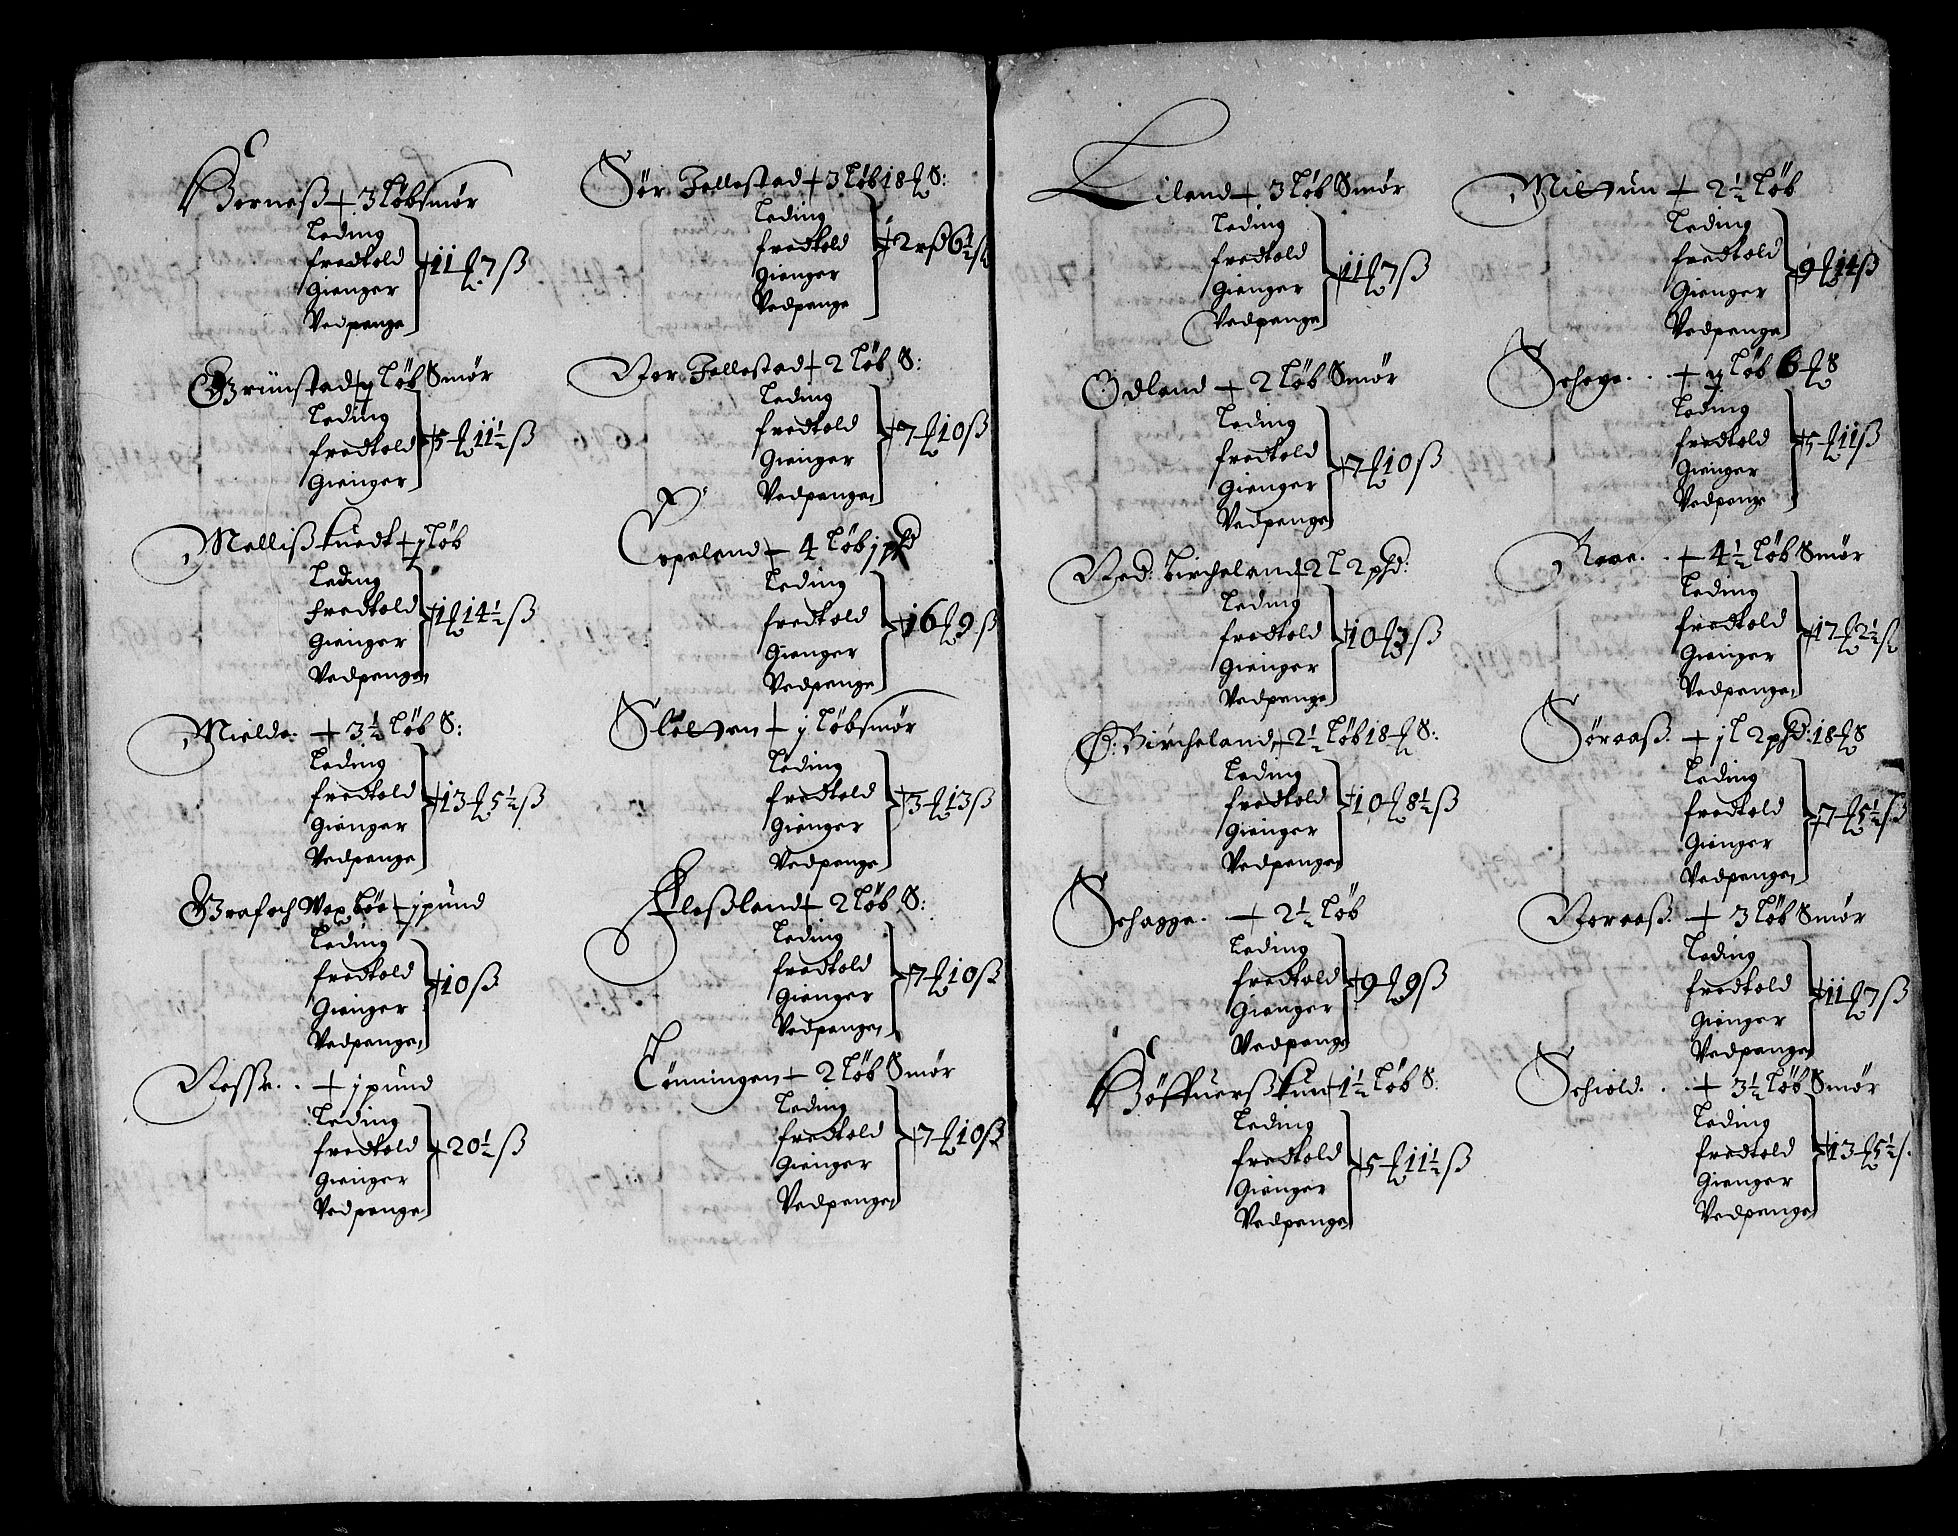 Horneß + 3 Løb smør
Leding
fredtold
Gienger
Vedpenge
11 ℔ 7 ß
Grünstad + j Løb Smør
Leding
fredtold
Gienger
5 ℔ 11½ ß
Mellißtuedt + j Løb
Leding
fredtold
Gienger
Vedpenge
14½ ß
Mielde + 3½ Løb S:
Leding
fredtold
Gienger
Vedpenge
13 ℔ 5½ ß
Graf och Wexböe + j pund
Leding
fredtold
Gienger
Vedpenge
10 ß
Nesse . . + j pund
Leding
fredtold
Gienger
Vedpenge
20½ ß
Sør Fellestad + 3 Løb 18 ℔ S:
Leding
fredtold
Gienger
Vedpenge
Nor Fellestad + 2 Løb S:
Leding
fredtold
Gienger
Vedpenge
7 ℔ 10 ß
Espeland + 4 Løb j phd
Leding
fredtold
Gienger
Vedpenge
16 ℔ 9 ß
Sletten + j Løb smør
Leding
fredtold
Gienger
Vedpenge
3 ℔ 13 ß
Fleßland + 2 Løb S:
Leding
fredtold
Gienger
Vedpenge
7 ℔ 10 ß
Tønningen + 2 Løb Smør
Leding
fredtold
Gienger
Vedpenge
7 ℔ 10 ß
Liland + 3 Løb Smør
Leding
fredtold
Gienger
Vedpenge
11 ℔ 7 ß
Ødland + 2 Løb Smør
Leding
fredtold
Gienger
Vedpenge
7 ℔ 10 ß
Ned: Bircheland + 2 L 2 phd:
Leding
fredtold
Gienger
Vedpenge
10 ℔ 3 ß
Ø: Bircheland + 2½ Løb 18 ℔ S:
Leding
fredtold
Gienger
Vedpenge
10 ℔ 8½ ß
Schagge . + 2½ Løb
Leding
fredtold
Gienger
Vedpenge
9 ℔ 9 ß
+ 1½ Løb S:
Leding
fredtold
Gienger
Vedpenge
5 ℔ 11½ ß
Miltun + 2½ Løb
Leding
fredtold
Gienger
Vedpenge
9 ℔ 14 ß
Schage . . + j Løb 6 ℔ S
Leding
fredtold
Gienger
Vedpenge
5 ℔ 11 ß
Raae . . + 4½ Løb Smør
Leding
fredtold
Gienger
Vedpenge
17 ℔ 2½ ß
Søraaß . + j L 2 phd: 18 ℔ S
Leding
fredtold
Gienger
Vedpenge
7 ℔ 5½ ß
Noraaß . + 3 Løb Smør
Leding
fredtold
Gienger
Vedpenge
11 ℔ 7 ß
Schiold . . + 3½ Løb Smør
Leding
fredtold
Gienger
Vedpenge
13 ℔ 5½ ß